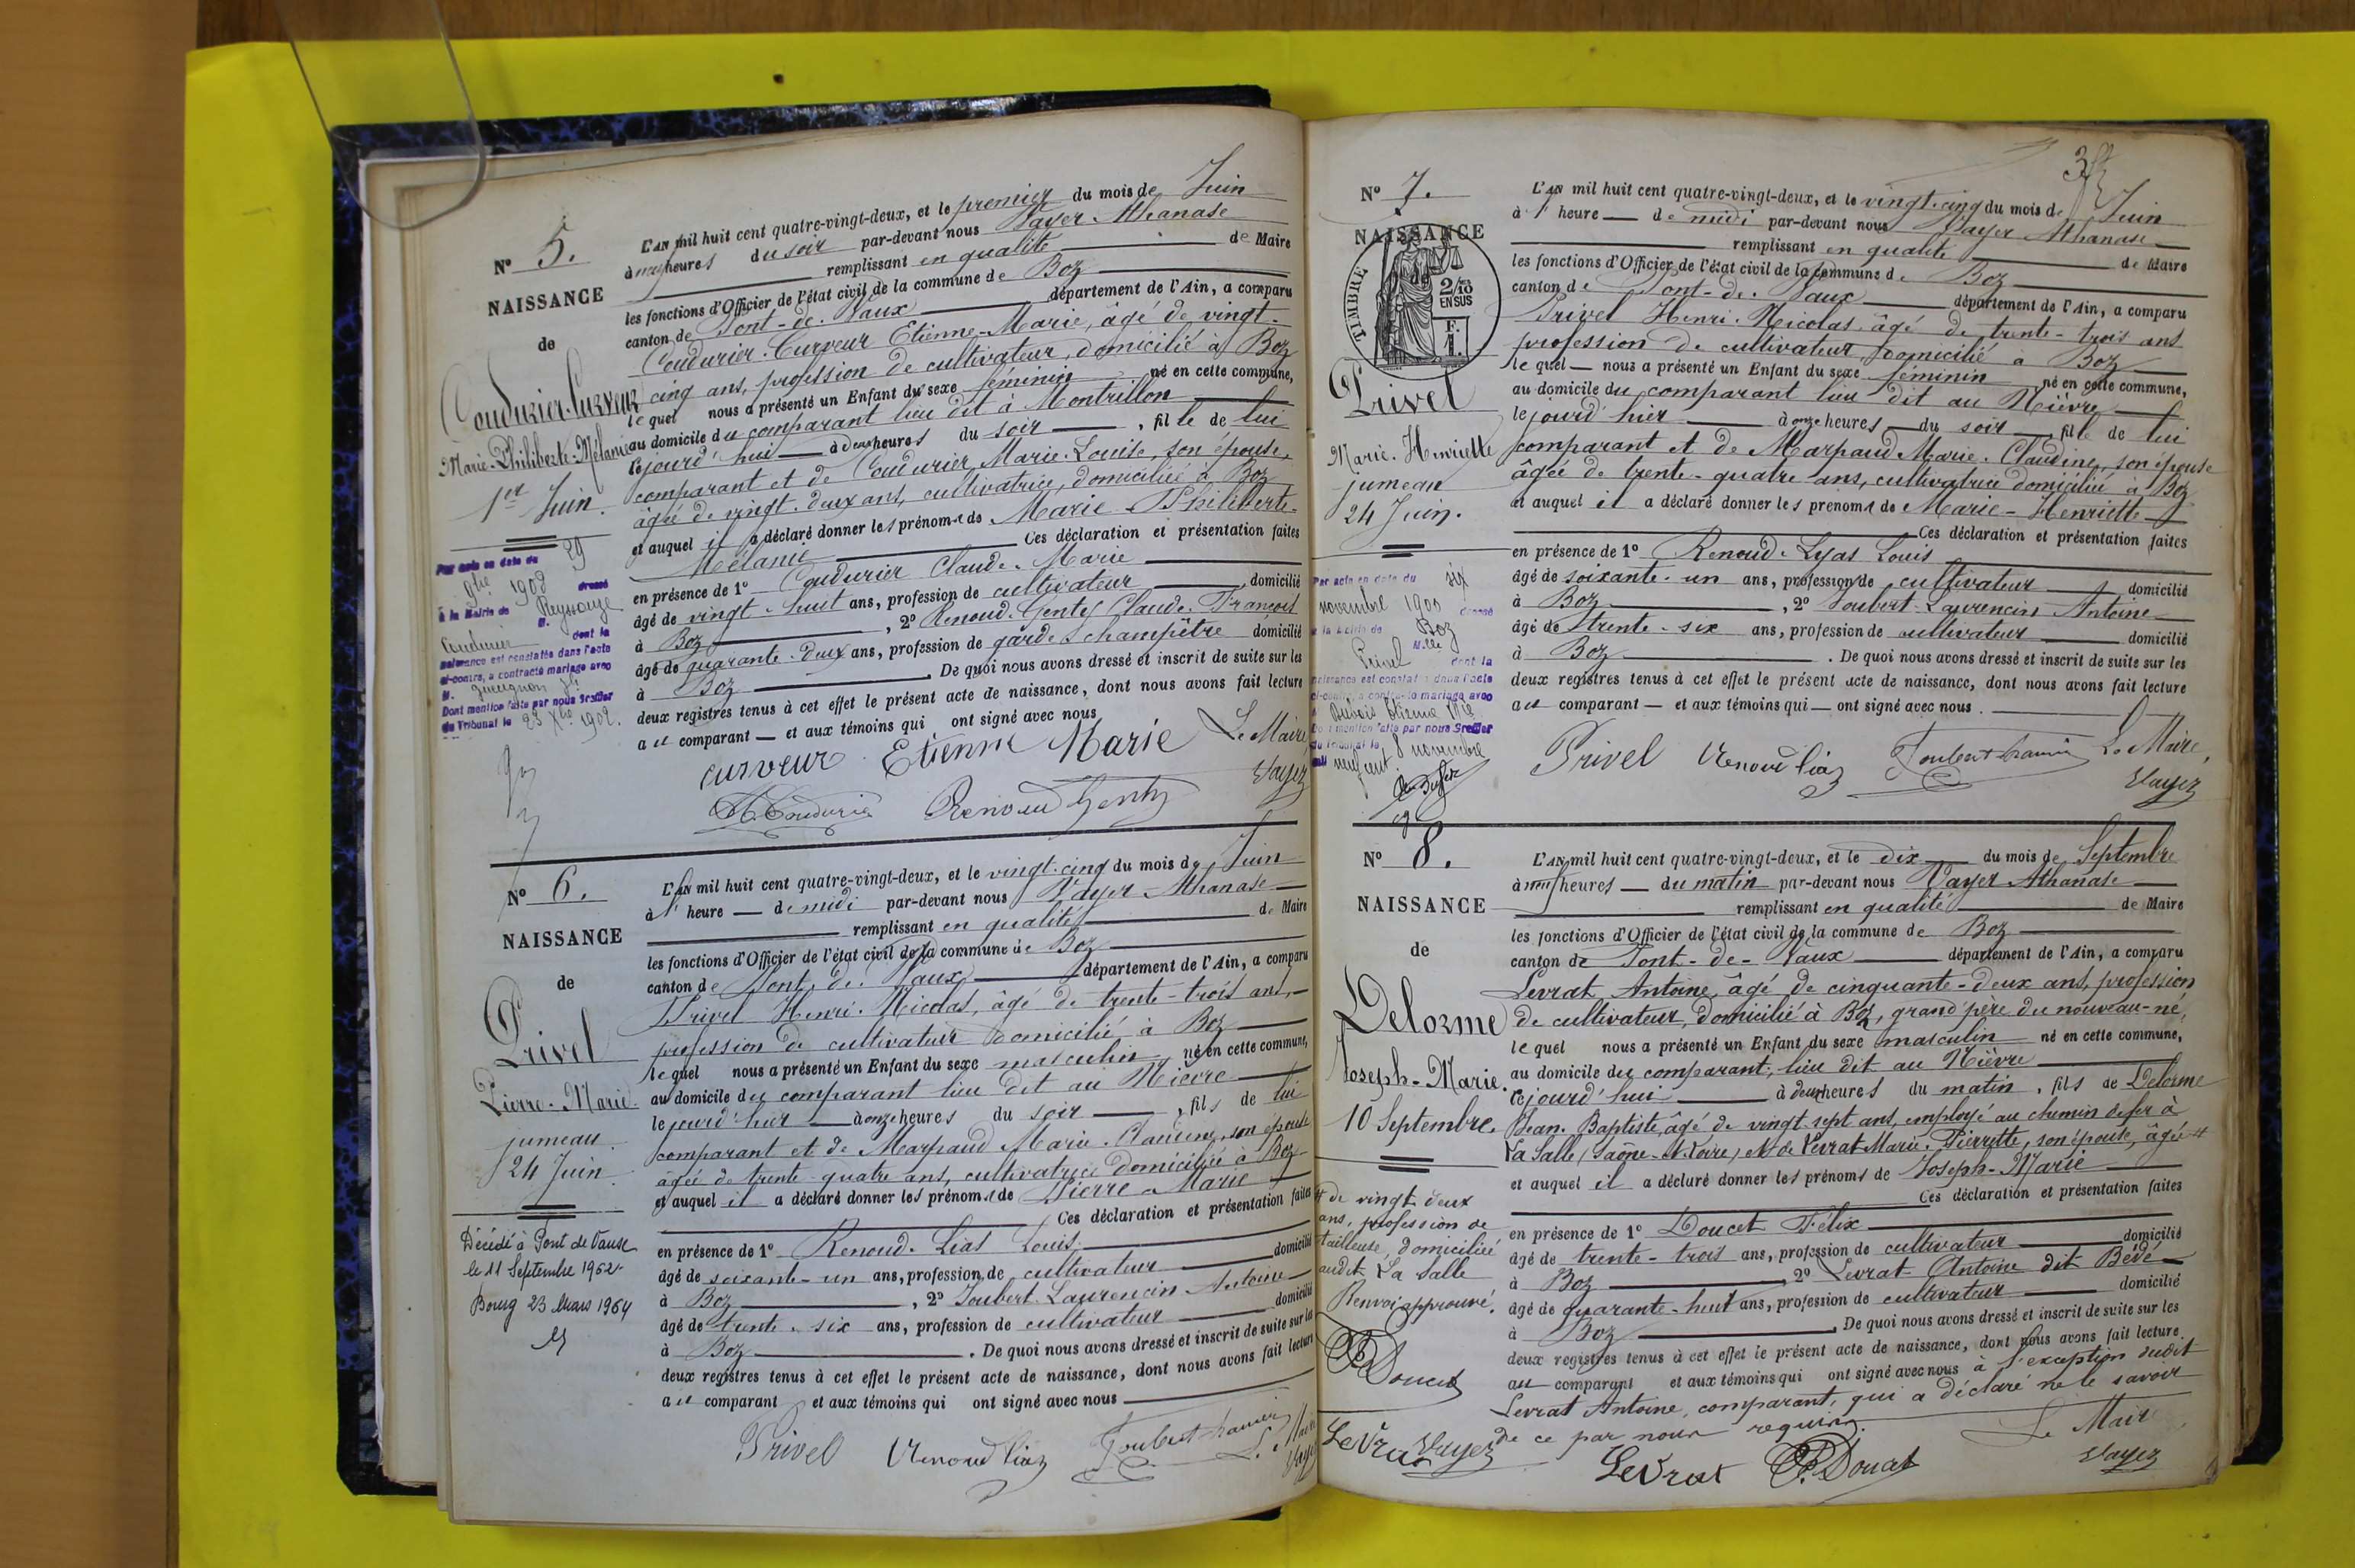 N° 5.
NAISSANCE
de
Coudurier-Curveur
Marie-Philiberte-Mélanie
1er Juin.
Par acte en date du 29
9bre 1908 dressé
à la Mairie de Reyssouze
M.
Coudurier dont la
naissance est constatée dans l'acte
ci-contre, a contracté mariage avec
M.
Dont mention faite par nous Greffier
du Tribunal le 23 Xbre 1902.
L'AN mil huit cent quatre-vingt-deux, et le premier du mois de Juin
à neuf heures du soir par-devant nous Vayer Athanase
remplissant en qualité de Maire
les fonctions d'Officier de l'état civil de la commune de Boz
canton de Pont-de-Vaux département de l'Ain, a comparu
Coudurier-Curveur Etienne-Marie, âgé de vingt-
cinq ans, profession de cultivateur, domicilié à Boz
lequel nous a présenté un Enfant du sexe féminin né en cette commune,
au domicile du comparant lieu dit à Montrillon
cejourd'hui à deux heures du soir, fille de lui
comparant et de Coudurier Marie-Louise, son épouse,
âgée de vingt-deux ans, cultivatrice, domiciliée à Boz
et auquel il a déclaré donner les prénoms de Marie-Philiberte-
Mélanie Ces déclaration et présentation faites
en présence de 1° Coudurier Claude-Marie
âgé de vingt-huit ans, profession de cultivateur, domicilié
à Boz, 2° Renoud-Gentes Claude-François
âgé de quarante-deux ans, profession de garde champêtre domicilié
à Boz. De quoi nous avons dressé et inscrit de suite sur les
deux registres tenus à cet effet le présent acte de naissance, dont nous avons fait lecture
au comparant — et aux témoins qui ont signé avec nous
curveur Etienne Marie Le Maire,
Coudurier Renoud Genty Vayer
N° 6.
NAISSANCE
de
Privel
Pierre-Marie
jumeau
24 Juin.
Décédé à Pont de Vaux
le 11 Septembre 1962
Bourg 23 Mars 1964
L'AN mil huit cent quatre-vingt-deux, et le vingt-cinq du mois de Juin
à 1 heure — de midi par-devant nous Vayer Athanase
remplissant en qualité de Maire
les fonctions d'Officier de l'état civil de la commune de Boz
canton de Pont-de-Vaux département de l'Ain, a comparu
Privel Henri-Nicolas, âgé de trente-trois ans,
profession de cultivateur domicilié à Boz
lequel nous a présenté un Enfant du sexe masculin né en cette commune,
au domicile du comparant lieu dit au Nièvre
le jourd'hier à onze heures du soir, fils de lui
comparant et de Marpaud Marie-Claudine, son épouse
âgée de trente-quatre ans, cultivatrice domiciliée à Boz
et auquel il a déclaré donner les prénoms de Pierre-Marie
Ces déclaration et présentation faites
en présence de 1° Renoud-Lias Louis
âgé de soixante-un ans, profession de cultivateur domicilié
à Boz, 2° Joubert-Laurencin Antoine
âgé de trente-six ans, profession de cultivateur domicilié
à Boz. De quoi nous avons dressé et inscrit de suite sur les
deux registres tenus à cet effet le présent acte de naissance, dont nous avons fait lecture
au comparant et aux témoins qui ont signé avec nous
Privel Renoud lias Joubert Le Maire
Vayer
N° 7.
NAISSANCE
TIMBRE
2/10
EN SUS
F.
1.
Privel
Marie-Henriette
jumeau
24 Juin.
Par acte en date du six
novembre 1900 dressé
à la Mairie de Boz
Mlle
Privel dont la
naissance est constatée dans l'acte
ci-contre, a contracté mariage avec
Dubois Etienne
Dont mention faite par nous Greffier
du Tribunal le 8 novembre
neuf cent.
L'AN mil huit cent quatre-vingt-deux, et le vingt-cinq du mois de Juin
à 1 heure — de midi par-devant nous Vayer Athanase
remplissant en qualité de Maire
les fonctions d'Officier de l'état civil de la commune de Boz
canton de Pont-de-Vaux département de l'Ain, a comparu
Privel Henri-Nicolas âgé de trente-trois ans
profession de cultivateur domicilié à Boz
lequel — nous a présenté un Enfant du sexe féminin né en cette commune,
au domicile du comparant lieu dit au Nièvre
le jourd'hier à onze heures du soir fille de lui
comparant et de Marpaud Marie-Claudine, son épouse
âgée de trente-quatre ans, cultivatrice domiciliée à Boz
et auquel il a déclaré donner les prénoms de Marie-Henriette
Ces déclaration et présentation faites
en présence de 1° Renoud-Lyas Louis
âgé de soixante-un ans, profession de cultivateur domicilié
à Boz, 2° Joubert-Laurencin Antoine
âgé de trente-six ans, profession de cultivateur domicilié
à Boz. De quoi nous avons dressé et inscrit de suite sur les
deux registres tenus à cet effet le présent acte de naissance, dont nous avons fait lecture
au comparant — et aux témoins qui — ont signé avec nous.
Privel Renoud lias Joubert Le Maire,
Vayer
N° 8.
NAISSANCE
de
Delorme
Joseph-Marie.
10 Septembre.
# de vingt-deux
ans, profession de
tailleuse, domiciliée
audit La Salle
Renvoi approuvé.
Doucet
Levrat Vayer
L'AN mil huit cent quatre-vingt-deux, et le dix du mois de Septembre
à neuf heures — du matin par-devant nous Vayer Athanase
remplissant en qualité de Maire
les fonctions d'Officier de l'état civil de la commune de Boz
canton de Pont-de-Vaux département de l'Ain, a comparu
Levrat Antoine, âgé de cinquante-deux ans, profession
de cultivateur, domicilié à Boz, grand'père du nouveau-né,
lequel nous a présenté un Enfant du sexe masculin né en cette commune,
au domicile du comparant, lieu dit au Nièvre
cejourd'hui à deux heures du matin, fils de Delorme
Jean-Baptiste, âgé de vingt-sept ans, employé au chemin de fer à
La Salle (Saône-et-Loire) et de Levrat Marie-Pierrette, son épouse, âgée #
et auquel il a déclaré donner les prénoms de Joseph-Marie
Ces déclaration et présentation faites
en présence de 1° Doucet Félix
âgé de trente-trois ans, profession de cultivateur domicilié
à Boz, 2° Levrat Antoine dit Bédé
âgé de quarante-huit ans, profession de cultivateur domicilié
à Boz. De quoi nous avons dressé et inscrit de suite sur les
deux registres tenus à cet effet le présent acte de naissance, dont nous avons fait lecture
au comparant et aux témoins qui ont signé avec nous à l'exception dudit
Levrat Antoine, comparant, qui a déclaré ne le savoir
de ce par nous requis.
Levrat Doucet Le Maire,
Vayer